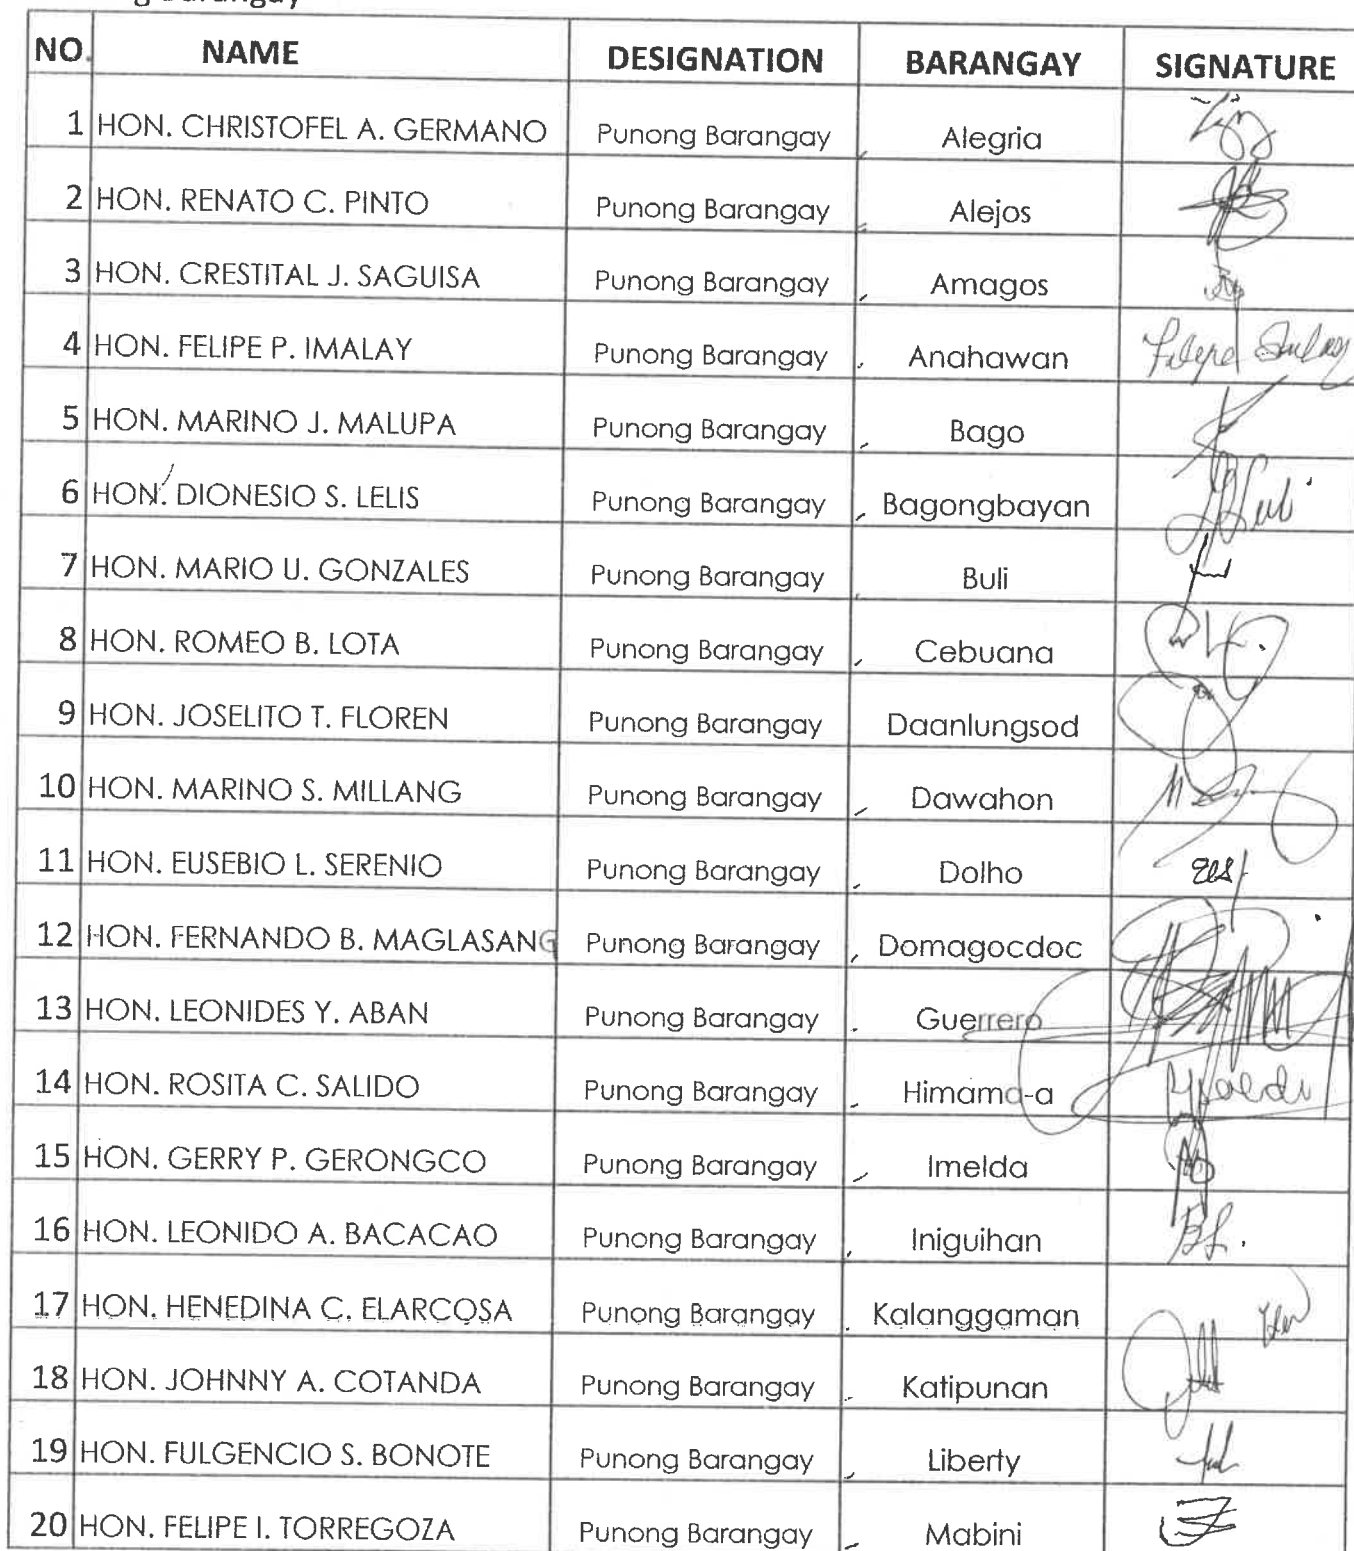 Barangay
NO. NAME DESIGNATION BARANGAY SIGNATURE
1 HON. CHRISTOFEL A. GERMANO Punong Barangay Alegria
2 HON. RENATO C. PINTO Punong Barangay Alejos
3 HON. CRESTITAL J. SAGUISA Punong Barangay Amagos
4 HON. FELIPE P. IMALAY Punong Barangay Anahawan
5 HON. MARINO J. MALUPA Punong Barangay Bago
6 HON. DIONESIO S. LELIS Punong Barangay Bagongbayan
7 HON. MARIO U. GONZALES Punong Barangay Buli
8 HON. ROMEO B. LOTA Punong Barangay Cebuana
9 HON. JOSELITO T. FLOREN Punong Barangay Daanlungsod
10 HON. MARINO S. MILLANG Punong Barangay Dawahon
11 HON. EUSEBIO L. SERENIO Punong Barangay Dolho
12 HON. FERNANDO B. MAGLASANG Punong Barangay Domagocdoc
13 HON. LEONIDES Y. ABAN Punong Barangay Guerrero
14 HON. ROSITA C. SALIDO Punong Barangay Himama-a
15 HON. GERRY P. GERONGCO Punong Barangay Imelda
16 HON. LEONIDO A. BACACAO Punong Barangay Iniguihan
17 HON. HENEDINA C. ELARCOSA Punong Barangay Kalanggaman
18 HON. JOHNNY A. COTANDA Punong Barangay Katipunan
19 HON. FULGENCIO S. BONOTE Punong Barangay Liberty
20 HON. FELIPE I. TORREGOZA Punong Barangay Mabini